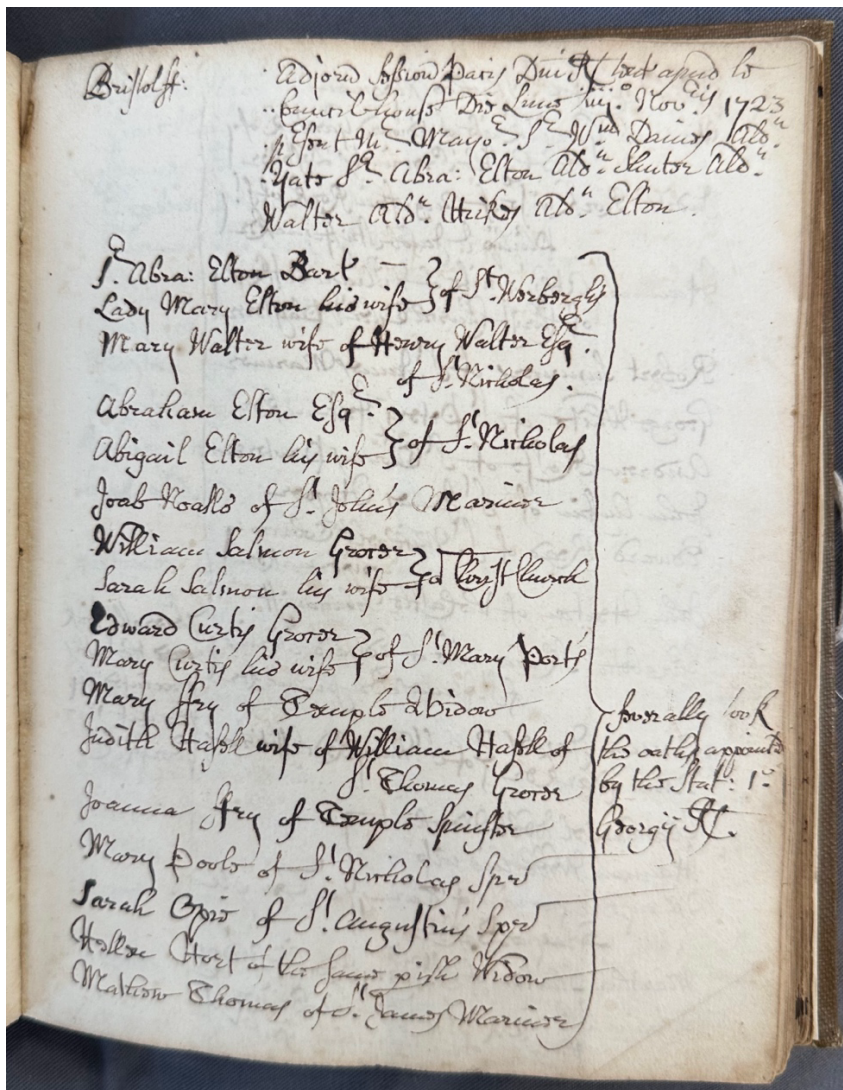 Bristol ss:
Adjorn Session Pacis Dni R tent apud le
Councilhouse Die Lune iiij.º Novris 1723
p'sent Mr. Mayor Sr. Wm Daines Aldn.
Yate Sr. Abra: Elton Aldn. Shuter Aldn.
Walter Aldn. Hickes Aldn. Elton.
Sr. Abra: Elton Bart
Lady Mary Elton his wife } of St. Werberghs
Mary Walter wife of Henry Walter Esqr.
of St. Nicholas.
Abraham Elton Esqr.
Abigail Elton his wife } of St. Nicholas
Joab Noalls of St. Johns Mariner
William Salmon Grocer
Sarah Salmon his wife } of Christ Church
Edward Curtis Grocer
Mary Curtis his wife } of St. Mary Ports
Mary ffry of Temple Widow
Judith Hasell wife of William Hasell of
St. Thomas Grocer
Joanna ffry of Temple Spinster
Mary Poole of St. Nicholas Sper
Sarah Opie of St. Augustins Sper
Hellen Hort of the same pish Widow
Mathew Thomas of St. James Mariner
Severally took
the oaths appointed
by the Stat: 1º
Georgij R.